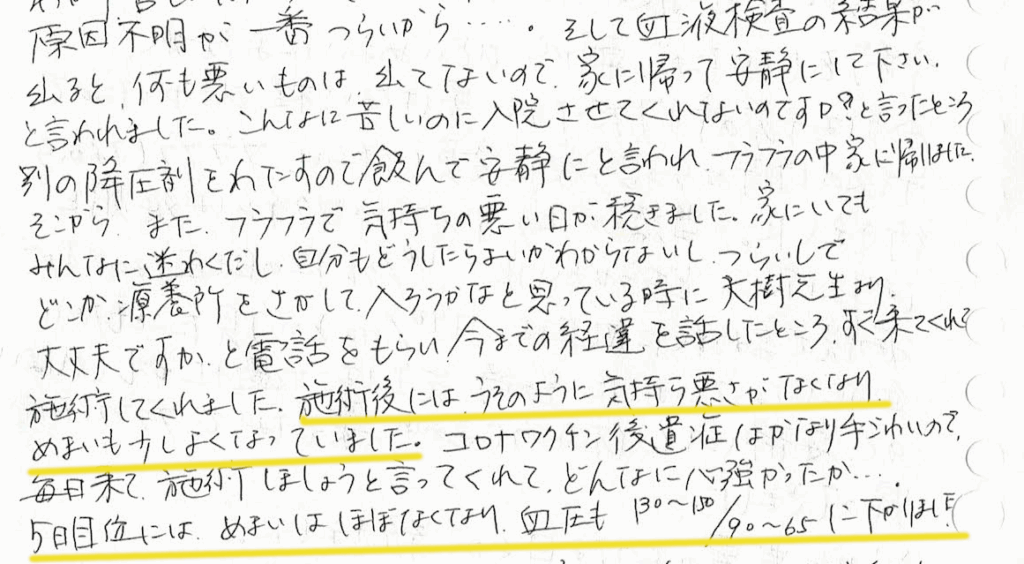 原因不明が一番つらいから……。そして血液検査の結果が
出ると、何も悪いものは、出てないので、家に帰って安静にして下さい。
と言われました。こんなに苦しいのに入院させてくれないのですか?と言ったところ
別の降圧剤をわたすので飲んで安静にと言われ、フラフラの中家に帰りました。
そこから、また、フラフラで気持ちの悪い日が続きました。家にいても
みんなに迷わくだし、自分もどうしたらよいかわからないし、つらいしで
どこか療養所をさがして、入ろうかなと思っている時に大樹先生より、
大丈夫ですか、と電話をもらい今までの経過を話したところ、すぐ来てくれて
施術してくれました。施術後には、うそのように気持ち悪さがなくなり
めまいも少しよくなっていました。コロナワクチン後遺症はかなり手ごわいので、
毎日来て、施術しましょうと言ってくれて、どんなに心強かったか…。
5日目位には、めまいはほぼなくなり、血圧も 130〜150/90〜65に下がりました